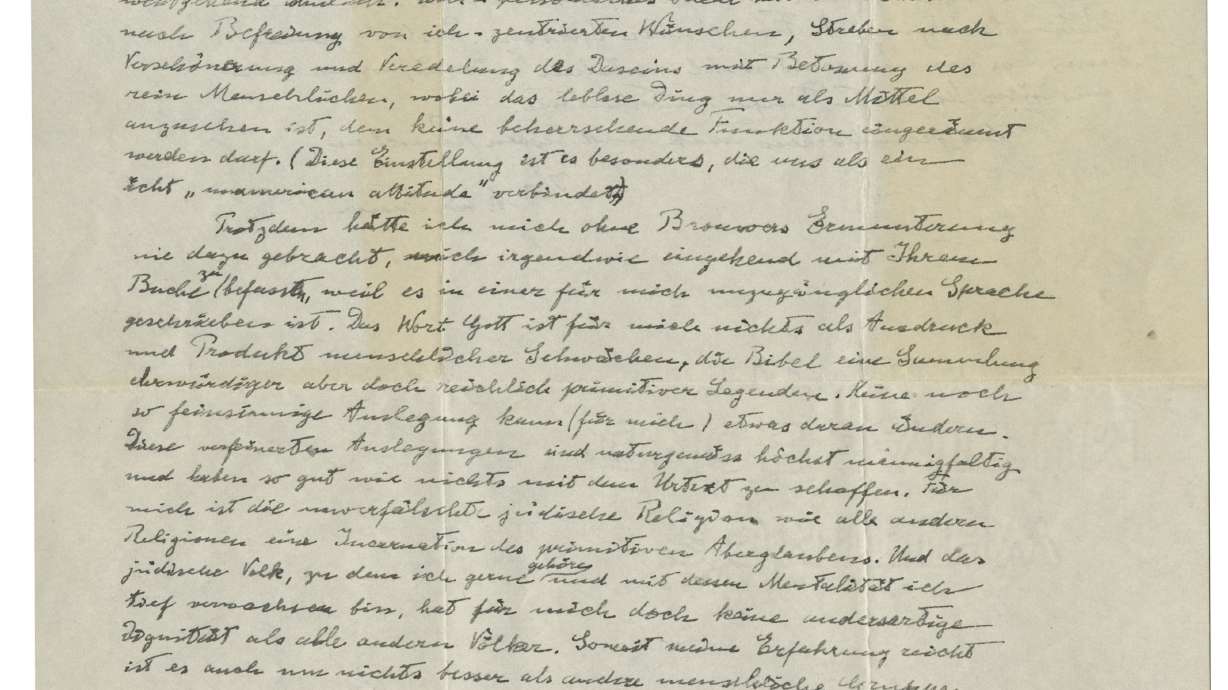 nach Befreiung von ich-zentrierten Wünschen, Streben nach
Verschönerung und Veredelung des Daseins mit Betonung des
rein Menschlichen, wobei das leblose Ding nur als Mittel
anzusehen ist, dem keine beherrschende Funktion eingeräumt
werden darf. (Diese Einstellung ist es besonders, die uns als ein
echt „unamerican attitude" verbindet.)
Trotzdem hätte ich mich ohne Brouwers Ermunterung
nie dazu gebracht, mich irgendwie eingehend mit Ihrem
Buche zu befassen, weil es in einer für mich unzugänglichen Sprache
geschrieben ist. Das Wort Gott ist für mich nichts als Ausdruck
und Produkt menschlicher Schwächen, die Bibel eine Sammlung
ehrwürdiger aber doch reichlich primitiver Legenden. Keine noch
so feinsinnige Auslegung kann (für mich) etwas daran ändern.
Diese verfeinerten Auslegungen sind naturgemäss höchst mannigfaltig
und haben so gut wie nichts mit dem Urtext zu schaffen. Für
mich ist die unverfälschte jüdische Religion wie alle anderen
Religionen eine Incarnation des primitiven Aberglaubens. Und das
jüdische Volk, zu dem ich gerne gehöre und mit dessen Mentalität ich
tief verwachsen bin, hat für mich doch keine andersartige
Dignität als alle anderen Völker. Soweit meine Erfahrung reicht
ist es auch um nichts besser als andere menschliche